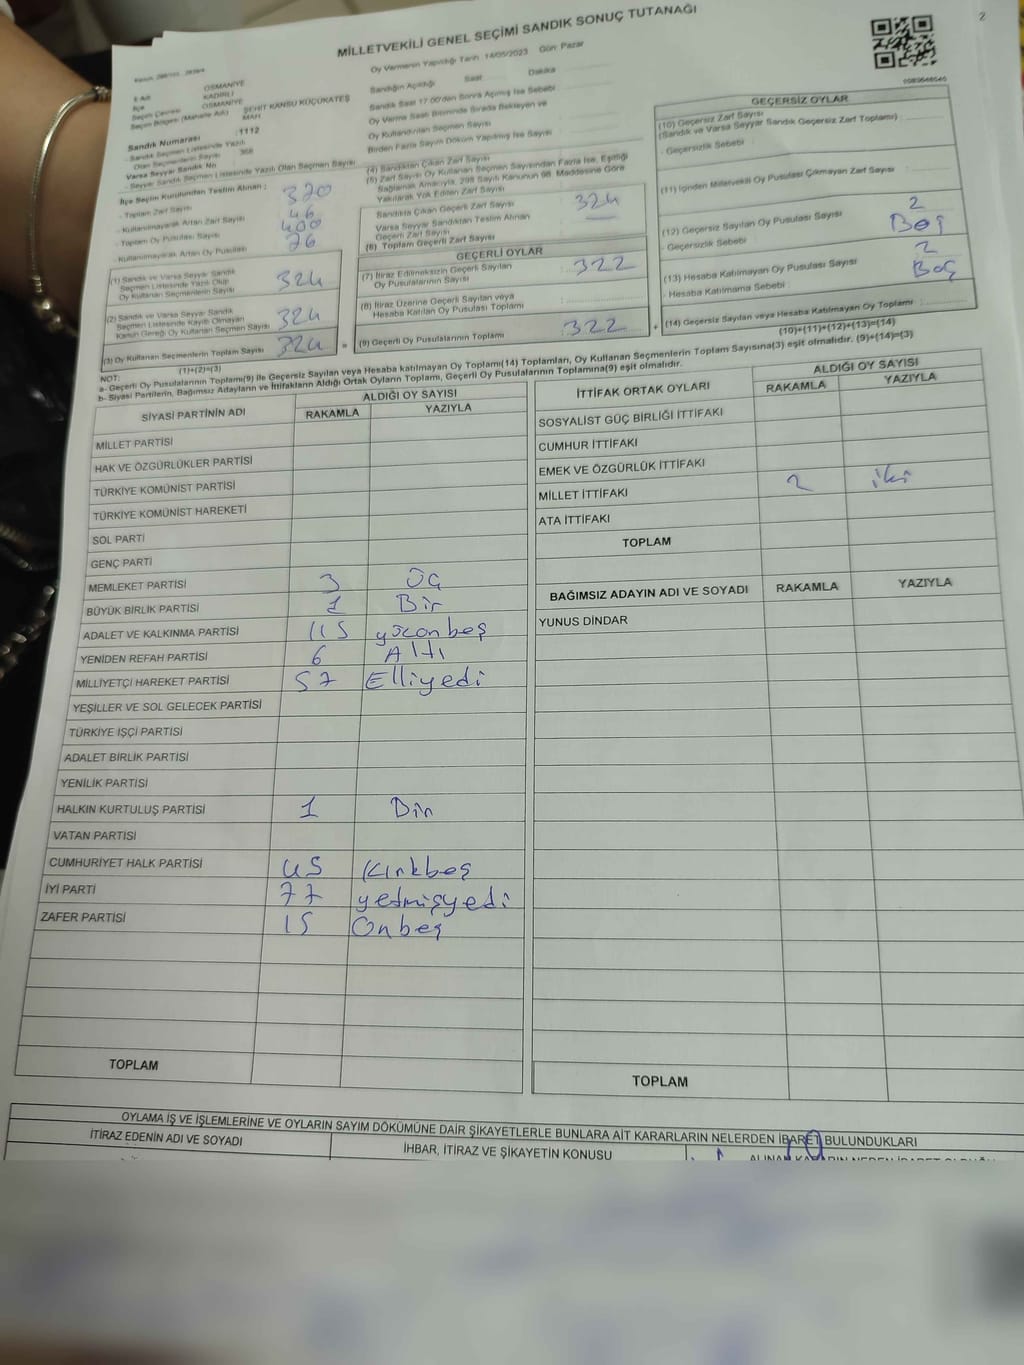 2
MİLLETVEKİLİ GENEL SEÇİMİ SANDIK SONUÇ TUTANAĞI
Oy Vermenin Yapıldığı Tarih 14/05/2023 Gün: Pazar
OSMANİYE
KADİRLİ
OSMANİYE
ŞEHİT KANSU KÜÇÜKATEŞ MAH.
Seçim Bölgesi (Mahalle Adı)
Sandık Numarası :1112
Sandık Seçmen Listesinde Yazılı
Olan Seçmenlerin Sayısı 368
Varsa Seyyar Sandık No
- Seyyar Sandık Seçmen Listesinde Yazılı Olan Seçmen Sayısı
İlçe Seçim Kurulundan Teslim Alınan :
- Toplam Zarf Sayısı 370
- Kullanılmayarak Artan Zarf Sayısı 46
- Toplam Oy Pusulası Sayısı 400
- Kullanılmayarak Artan Oy Pusulası 76
(1) Sandık ve Varsa Seyyar Sandık
Seçmen Listesinde Yazılı Olup
Oy Kullanan Seçmenlerin Sayısı 324
(2) Sandık ve Varsa Seyyar Sandık
Seçmen Listesinde Kayıtlı Olmayan
Kanun Gereği Oy Kullanan Seçmen Sayısı 324
(3) Oy Kullanan Seçmenlerin Toplam Sayısı 324
(1)+(2)=(3)
Sandığın Açıldığı Saat Dakika
Sandık Saat 17:00'den Sonra Açılmış İse Sebebi
Oy Verme Saati Bitiminde Sırada Bekleyen ve
Oy Kullandırılan Seçmen Sayısı
Birden Fazla Sayım Döküm Yapılmış İse Sayısı
(4) Sandıktan Çıkan Zarf Sayısı
(5) Zarf Sayısı Oy Kullanan Seçmen Sayısından Fazla İse, Eşitliği
Sağlamak Amacıyla, 298 Sayılı Kanunun 98. Maddesine Göre
Yakılarak Yok Edilen Zarf Sayısı
Sandıkta Çıkan Geçerli Zarf Sayısı 324
Varsa Seyyar Sandıktan Teslim Alınan
Geçerli Zarf Sayısı
(6) Toplam Geçerli Zarf Sayısı
GEÇERLİ OYLAR
(7) İtiraz Edilmeksizin Geçerli Sayılan
Oy Pusulasının Sayısı : 322
(8) İtiraz Üzerine Geçerli Sayılan veya
Hesaba Katılan Oy Pusulası Toplamı :
(9) Geçerli Oy Pusulalarının Toplamı : 322
GEÇERSİZ OYLAR
(10) Geçersiz Zarf Sayısı
(Sandık ve Varsa Seyyar Sandık Geçersiz Zarf Toplamı)
- Geçersizlik Sebebi
(11) İçinden Milletvekili Oy Pusulası Çıkmayan Zarf Sayısı
(12) Geçersiz Sayılan Oy Pusulası Sayısı 2
- Geçersizlik Sebebi Boş
(13) Hesaba Katılmayan Oy Pusulası Sayısı 2
- Hesaba Katılmama Sebebi Boş
(14) Geçersiz Sayılan veya Hesaba Katılmayan Oy Toplamı
(10)+(11)+(12)+(13)=(14)
NOT:
a- Geçerli Oy Pusulalarının Toplamı(9) ile Geçersiz Sayılan veya Hesaba katılmayan Oy Toplamı(14) Toplamları, Oy Kullanan Seçmenlerin Toplam Sayısına(3) eşit olmalıdır. (9)+(14)=(3)
b- Siyasi Partilerin, Bağımsız Adayların ve İttifakların Aldığı Ortak Oyların Toplamı, Geçerli Oy Pusulalarının Toplamına(9) eşit olmalıdır.
SİYASİ PARTİNİN ADI ALDIĞI OY SAYISI
RAKAMLA YAZIYLA
MİLLET PARTİSİ
HAK VE ÖZGÜRLÜKLER PARTİSİ
TÜRKİYE KOMÜNİST PARTİSİ
TÜRKİYE KOMÜNİST HAREKETİ
SOL PARTİ
GENÇ PARTİ
MEMLEKET PARTİSİ 3 Üç
BÜYÜK BİRLİK PARTİSİ 1 Bir
ADALET VE KALKINMA PARTİSİ 115 yüzonbeş
YENİDEN REFAH PARTİSİ 6 Altı
MİLLİYETÇİ HAREKET PARTİSİ 57 Elliyedi
YEŞİLLER VE SOL GELECEK PARTİSİ
TÜRKİYE İŞÇİ PARTİSİ
ADALET BİRLİK PARTİSİ
YENİLİK PARTİSİ
HALKIN KURTULUŞ PARTİSİ 1 Bir
VATAN PARTİSİ
CUMHURİYET HALK PARTİSİ 45 Kırkbeş
İYİ PARTİ 77 yetmişyedi
ZAFER PARTİSİ 15 Onbeş
TOPLAM
İTTİFAK ORTAK OYLARI ALDIĞI OY SAYISI
RAKAMLA YAZIYLA
SOSYALİST GÜÇ BİRLİĞİ İTTİFAKI
CUMHUR İTTİFAKI
EMEK VE ÖZGÜRLÜK İTTİFAKI
MİLLET İTTİFAKI 2 iki
ATA İTTİFAKI
TOPLAM
BAĞIMSIZ ADAYIN ADI VE SOYADI RAKAMLA YAZIYLA
YUNUS DİNDAR
TOPLAM
OYLAMA İŞ VE İŞLEMLERİNE VE OYLARIN SAYIM DÖKÜMÜNE DAİR ŞİKAYETLERLE BUNLARA AİT KARARLARIN NELERDEN İBARET BULUNDUKLARI
İTİRAZ EDENİN ADI VE SOYADI İHBAR, İTİRAZ VE ŞİKAYETİN KONUSU